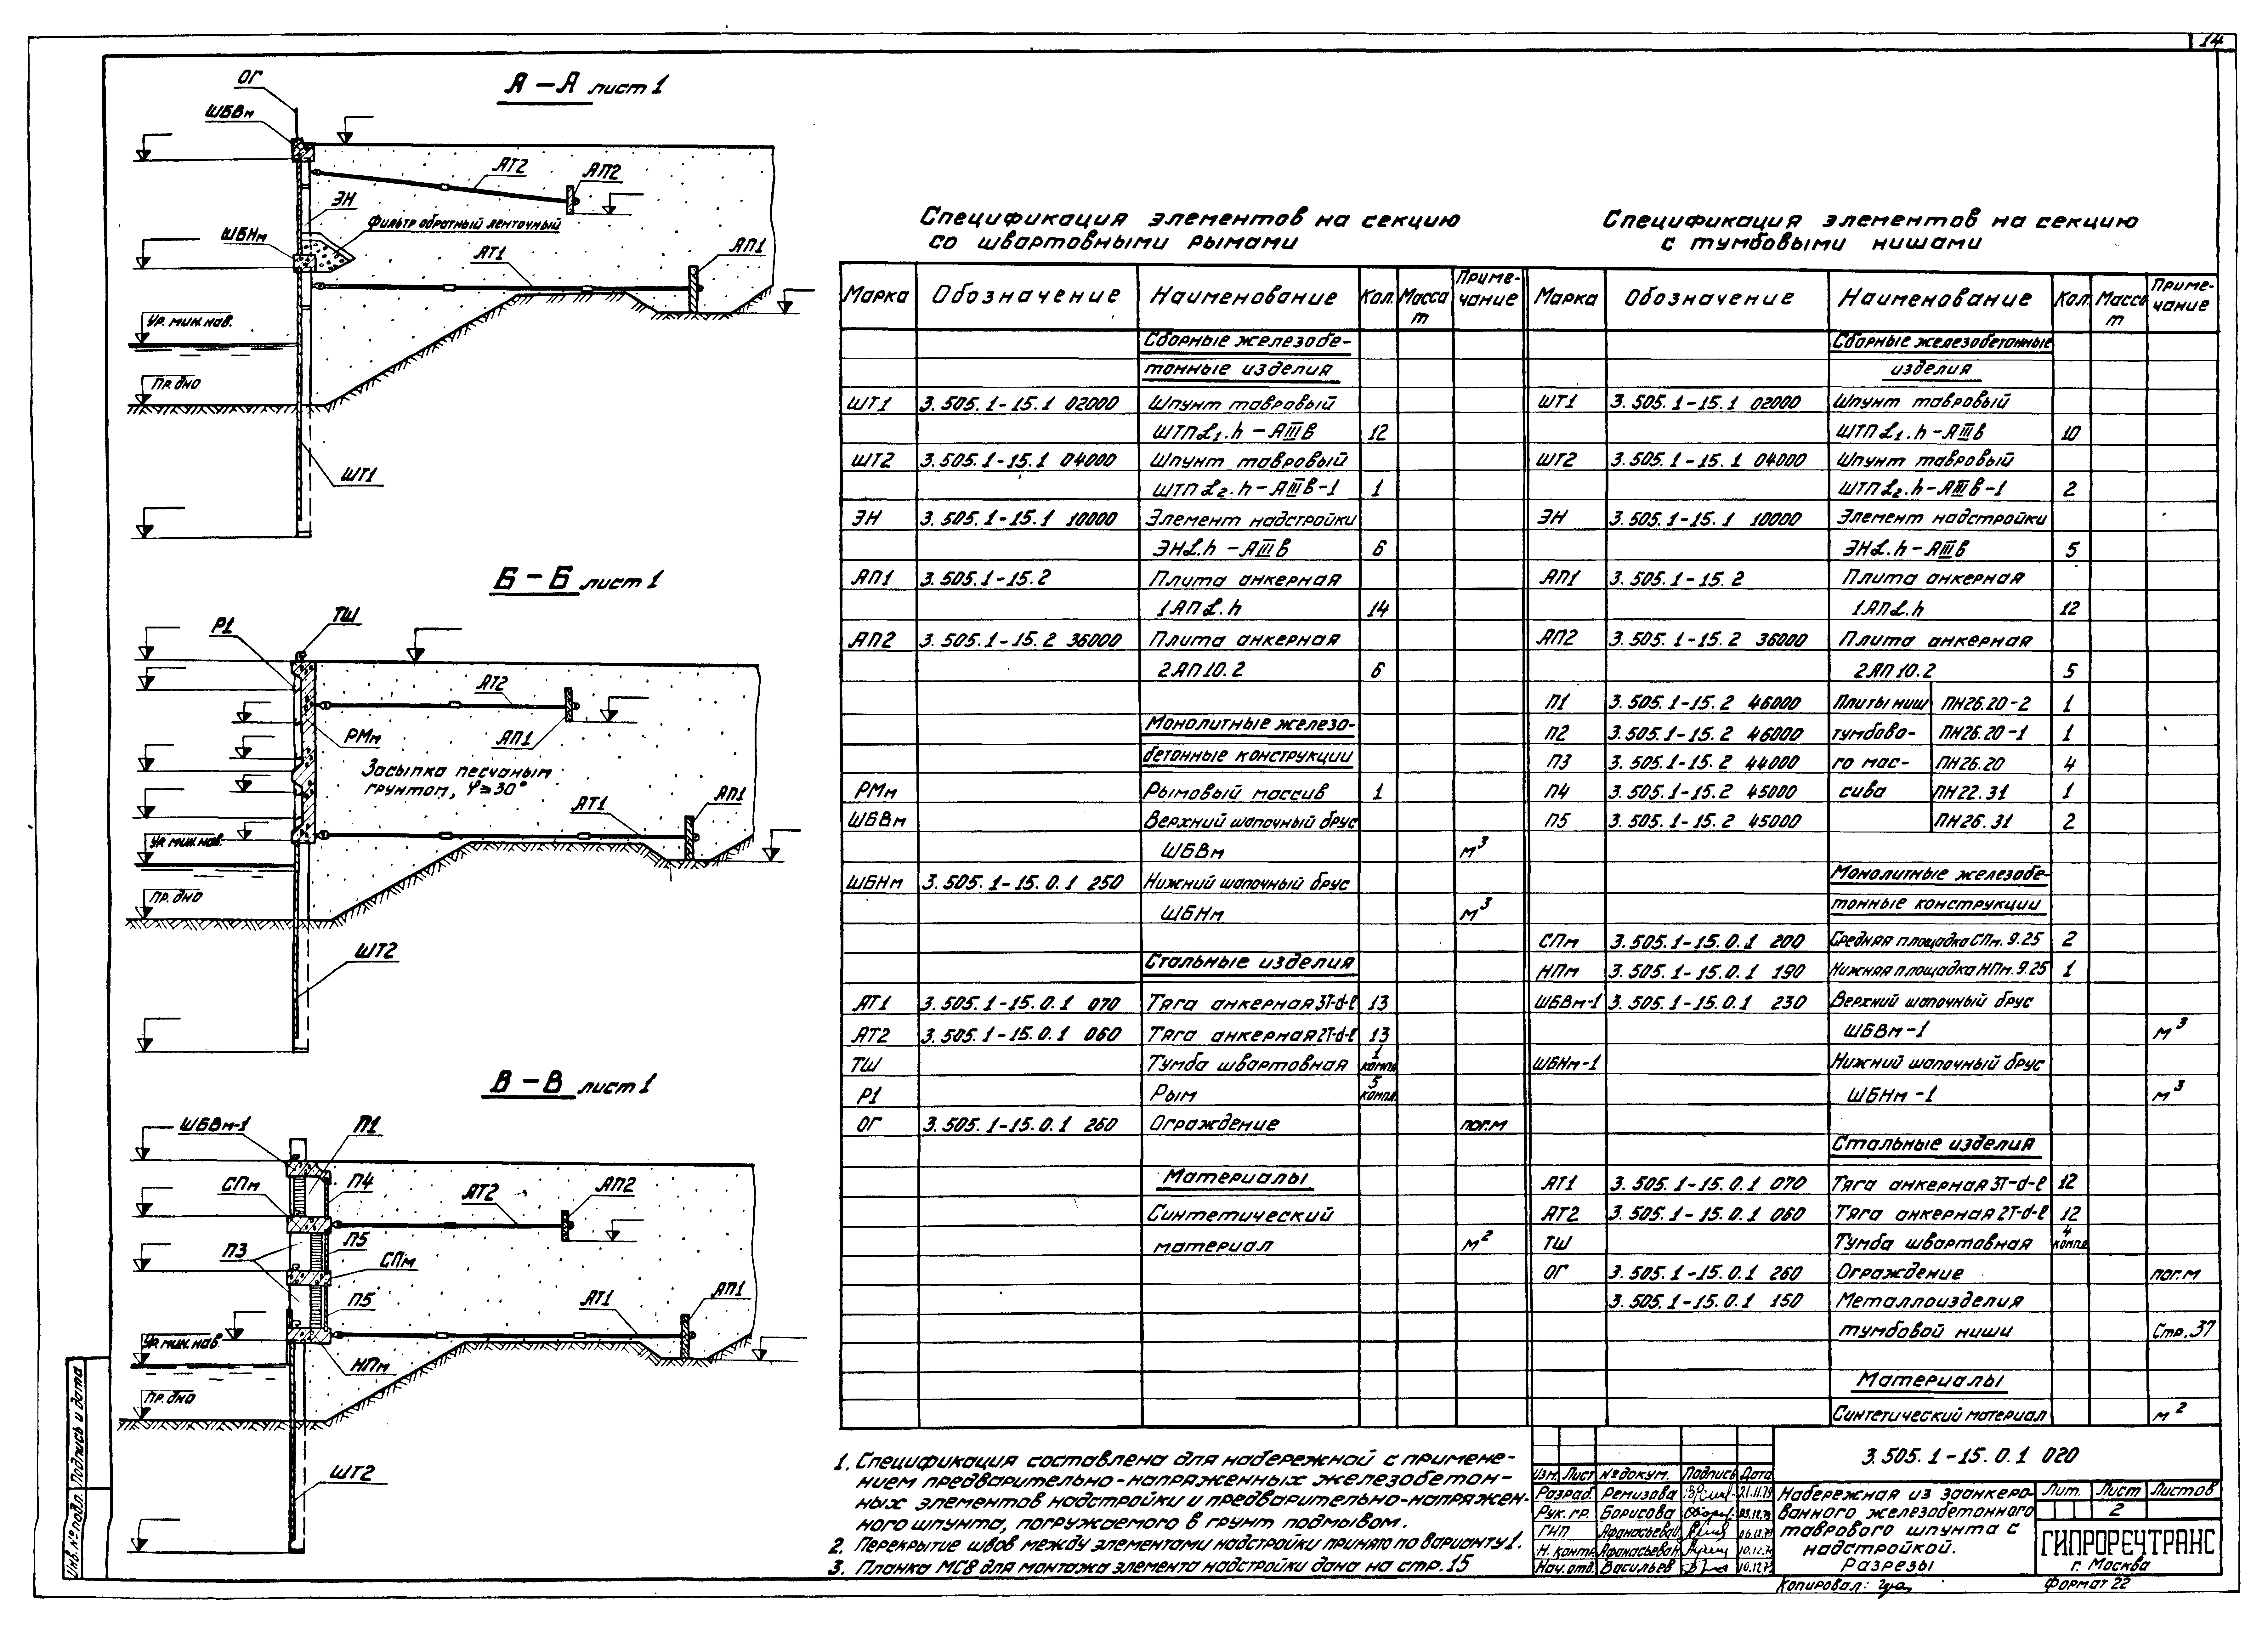 14
А – А лист 1
ОГ
ШБВм
АТ2
АП2
ЭН
Фильтр обратный ленточный
ШБНм
АТ1
АП1
Ур. мин. нав.
Пр. дно
ШТ1
Б – Б лист 1
Р1
ТШ
АТ2
АП1
РМм
Засыпка песчаным
грунтом, φ≥30°
АТ1
АП1
Ур. мин. нав.
Пр. дно
ШТ2
В – В лист 1
ШБВм-1
П1
СПм
П4
АТ2
АП2
П3
П5
СПм
П5
АТ1
АП1
Ур. мин. нав.
НПм
Пр. дно
ШТ2
Спецификация элементов на секцию
со швартовными рымами
Марка Обозначение Наименование Кол. Масса т Примечание
Сборные железобе-
тонные изделия
ШТ1 3.505.1-15.1 02000 Шпунт тавровый
ШТП L₁.h – АIIIв 12
ШТ2 3.505.1-15.1 04000 Шпунт тавровый
ШТП L₂.h – АIIIв-1 1
ЭН 3.505.1-15.1 10000 Элемент надстройки
ЭНL.h – АIIIв 6
АП1 3.505.1-15.2 Плита анкерная
1АПL.h 14
АП2 3.505.1-15.2 36000 Плита анкерная
2АП10.2 6
Монолитные железо-
бетонные конструкции
РМм Рымовый массив 1
ШБВм Верхний шапочный брус
ШБВм м³
ШБНм 3.505.1-15.0.1 250 Нижний шапочный брус
ШБНм м³
Стальные изделия
АТ1 3.505.1-15.0.1 070 Тяга анкерная 3Т-d-ℓ 13
АТ2 3.505.1-15.0.1 060 Тяга анкерная 2Т-d-ℓ 13
ТШ Тумба швартовная 1 компл.
Р1 Рым 5 компл.
ОГ 3.505.1-15.0.1 260 Ограждение пог.м
Материалы
Синтетический
материал м²
Спецификация элементов на секцию
с тумбовыми нишами
Марка Обозначение Наименование Кол. Масса т Примечание
Сборные железобетонные
изделия
ШТ1 3.505.1-15.1 02000 Шпунт тавровый
ШТП L₁.h – АIIIв 10
ШТ2 3.505.1-15.1 04000 Шпунт тавровый
ШТП L₂.h – АIIIв-1 2
ЭН 3.505.1-15.1 10000 Элемент надстройки
ЭНL.h – АIIIв 5
АП1 3.505.1-15.2 Плита анкерная
1АПL.h 12
АП2 3.505.1-15.2 36000 Плита анкерная
2АП10.2 5
П1 3.505.1-15.2 46000 Плиты ниш ПН26.20-2 1
П2 3.505.1-15.2 46000 тумбово- ПН26.20-1 1
П3 3.505.1-15.2 44000 го мас- ПН26.20 4
П4 3.505.1-15.2 45000 сива ПН22.31 1
П5 3.505.1-15.2 45000 ПН26.31 2
Монолитные железобе-
тонные конструкции
СПм 3.505.1-15.0.1 200 Средняя площадка СПм. 9.25 2
НПм 3.505.1-15.0.1 190 Нижняя площадка НПм. 9.25 1
ШБВм-1 3.505.1-15.0.1 230 Верхний шапочный брус
ШБВм-1 м³
ШБНм-1 Нижний шапочный брус
ШБНм-1 м³
Стальные изделия
АТ1 3.505.1-15.0.1 070 Тяга анкерная 3Т-d-ℓ 12
АТ2 3.505.1-15.0.1 060 Тяга анкерная 2Т-d-ℓ 12
ТШ Тумба швартовная 4 компл.
ОГ 3.505.1-15.0.1 260 Ограждение пог.м
3.505.1-15.0.1 150 Металлоизделия
тумбовой ниши Стр. 37
Материалы
Синтетический материал м²
1. Спецификация составлена для набережной с примене-
нием предварительно-напряженных железобетон-
ных элементов надстройки и предварительно-напряжен-
ного шпунта, погружаемого в грунт подмывом.
2. Перекрытие швов между элементами надстройки принято по варианту 1.
3. Планка МС8 для монтажа элемента надстройки дана на стр. 15
3.505.1-15.0.1 020
Изм. Лист № докум. Подпись Дата
Разраб. Ремизова 21.11.79
Рук. гр. Борисова
ГИП Афанасьева
Н. контр. Афанасьева 10.12.79
Нач. отд. Васильев 10.12.79
Набережная из заанкеро-
ванного железобетонного
таврового шпунта с
надстройкой.
Разрезы
Лит. Лист Листов
2
ГИПРОРЕЧТРАНС
г. Москва
Копировал:
Формат 22
Инв. № подл. Подпись и дата